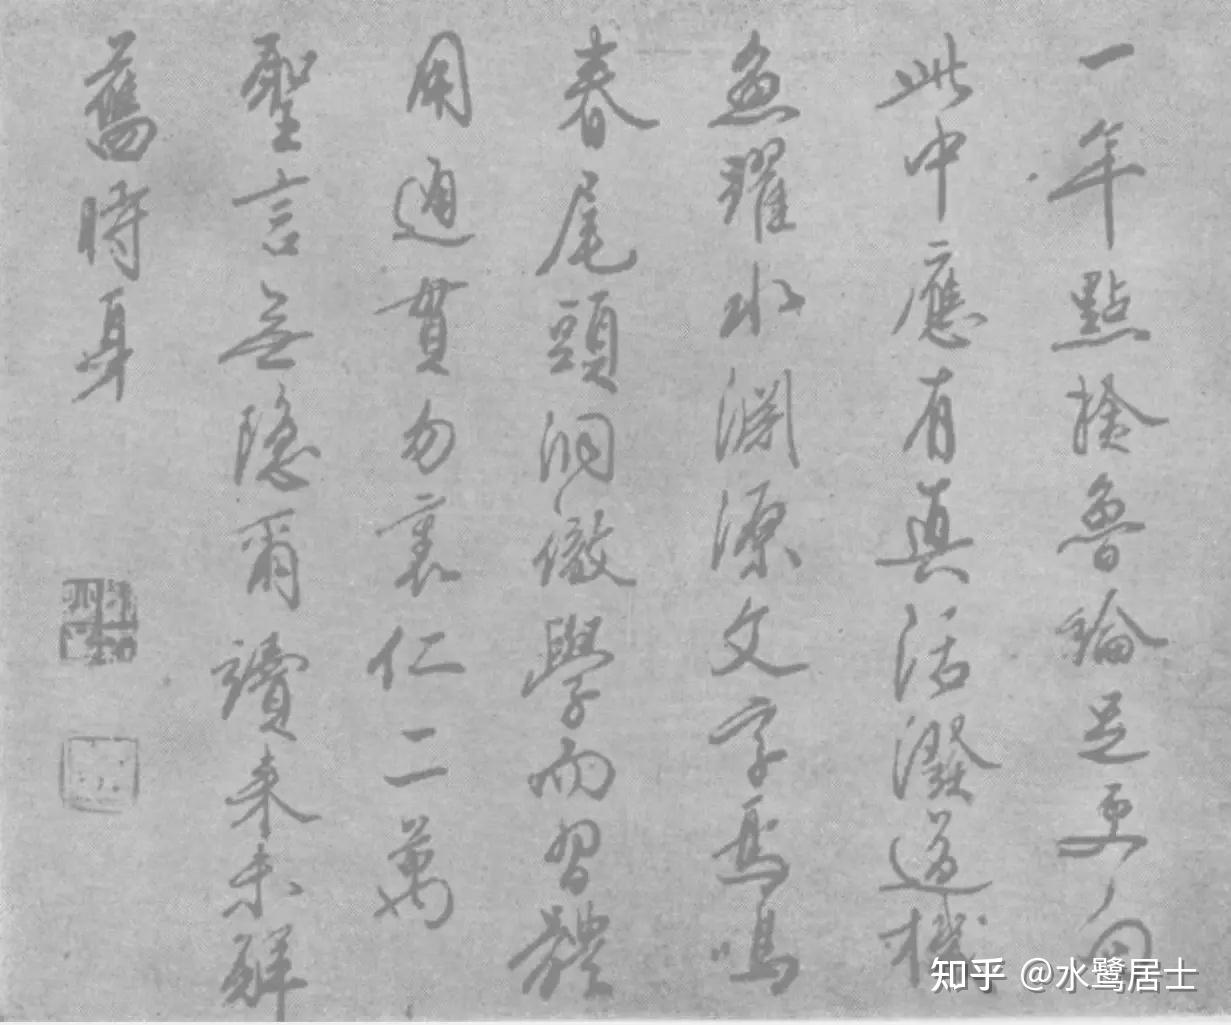 一年點檢魯論足更向
此中應有真活潑道機
魚躍水淵源文字鳥鳴
春尾頭洞徹學而習體
用通貫勿裏仁二萬
聖言無隱爾讀來未解
舊時身
知乎 @水鹭居士